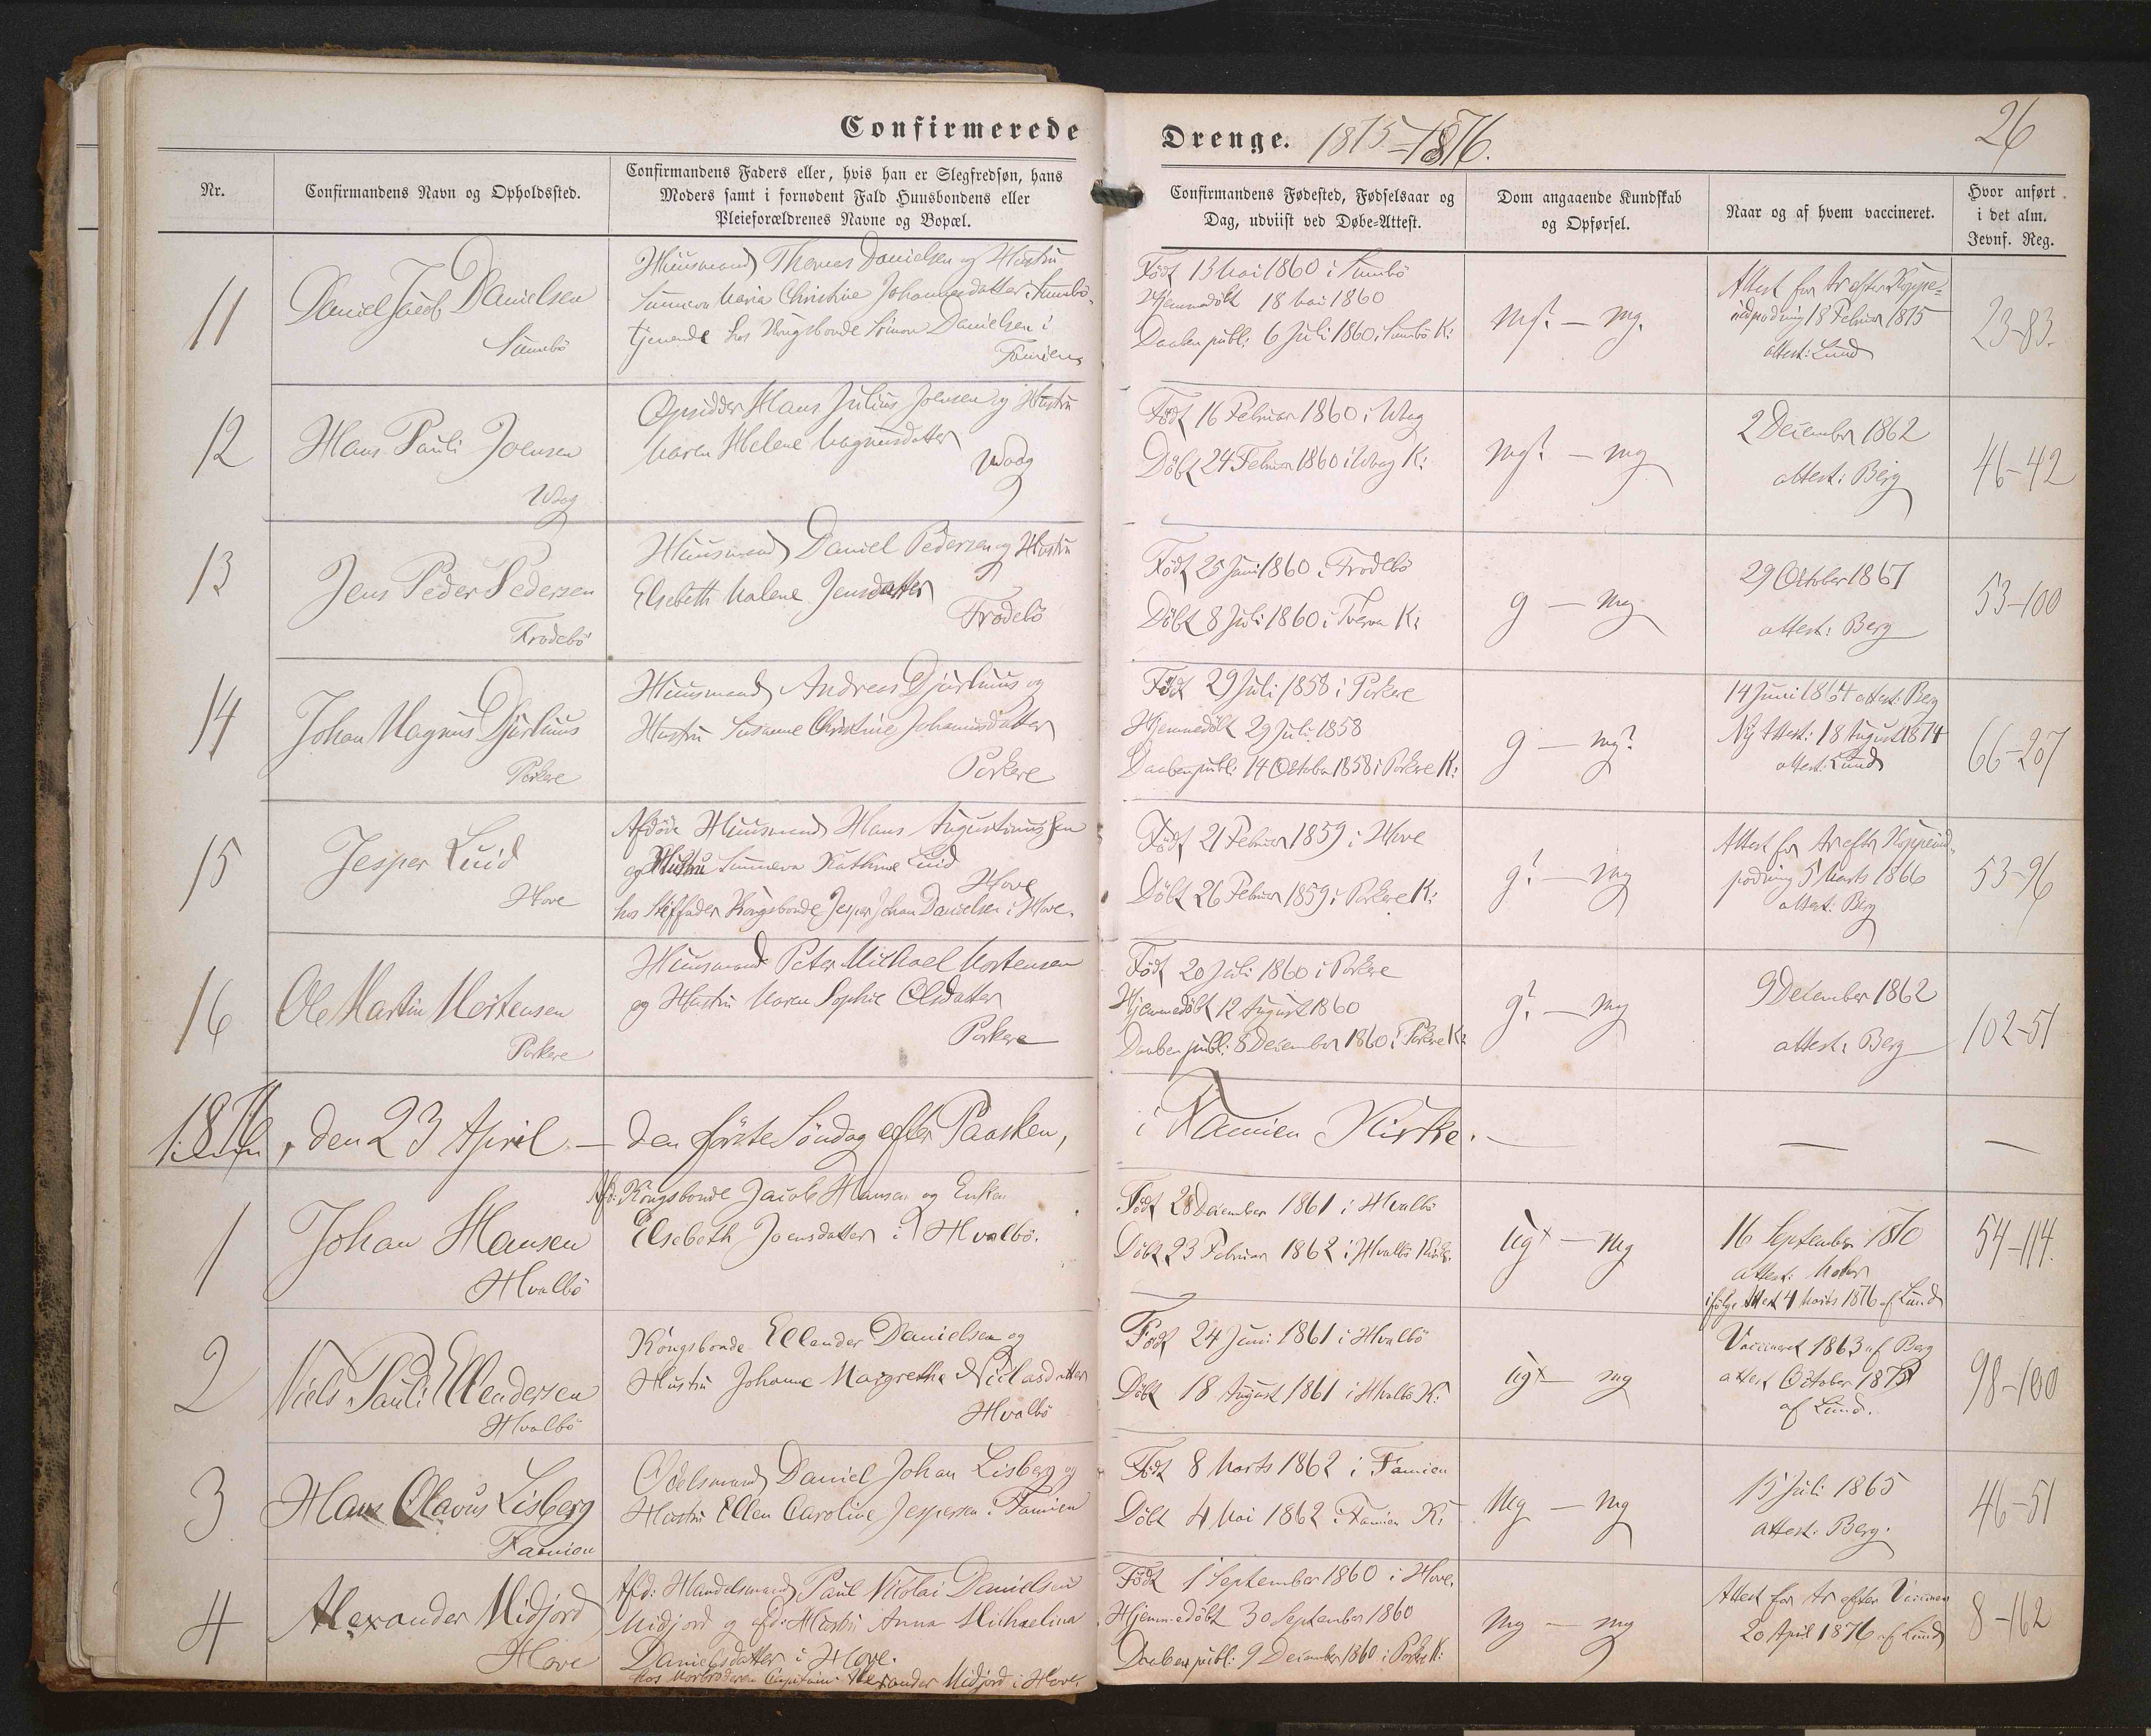 Confirmerede Drenge. 1875-1876.
26
Nr.
Confirmandens Navn og Opholdssted.
Confirmandens Faders eller, hvis han er Slegfredsøn, hans
Moders samt i fornødent Fald Huusbondens eller
Pleieforældrenes Navne og Bopæl.
Confirmandens Fødested, Fødselsaar og
Dag, udviist ved Døbe-Attest.
Dom angaaende Kundskab
og Opførsel.
Naar og af hvem vaccineret.
Hvor anført
i det alm.
Jevnf. Reg.
11
Daniel Jacob Danielsen
Sumbö
Huusmand Thomas Danielsen og Hustru
Sunneva Maria Christine Johannesdatter, Sumbö
tjenende hos Kongsbonde Simon Danielsen i
Famien
Født 13 Mai 1860 i Sumbö
Hjemmedöbt 18 Mai 1860
Daaben publ: 6 Juli 1860 i Sumbö K:
mg? — mg.
Attest for Ar efter Koppe-
indpodning 18 Februar 1875
attest: Lund
23-83.
12
Hans Pauli Joensen
Waag
Opsidder Hans Julius Joensen og Hustru
Maren Helene Magnusdatter
Waag
Født 16 Februar 1860 i Waag
Döbt 24 Februar 1860 i Waag K:
mg? — mg
2 December 1862
attest: Berg
46-42
13
Jens Peder Pedersen
Frodebö
Huusmand Daniel Pedersen og Hustru
Elsebeth Malene Jensdatter
Frodebö
Født 25 Juni 1860 i Frodebö
Döbt 8 Juli 1860 i Tveraa K:
g — mg
29 October 1867
attest: Berg
53-100
14
Johan Magnus Djurhuus
Porkere
Huusmand Andreas Djurhuus og
Hustru Susanne Christine Johannesdatter
Porkere
Født 29 Juli 1858 i Porkere
Hjemmedöbt 29 Juli 1858
Daaben publ: 14 October 1858 i Porkere K:
g — mg?
14 Juni 1864 attest: Berg
Ny Attest: 18 August 1874
attest: Lund
66-207
15
Jesper Luid
Hove
Afdöde Huusmand Hans Augustinussen
og Hustru Sunneva Kathrine Luid
Hove
hos Stiffader Kongsbonde Jesper Johan Danielsen i Hove.
Født 21 Februar 1859 i Hove
Döbt 26 Februar 1859 i Porkere K:
g? — mg
Attest for Ar efter Koppeind-
podning 5 Marts 1866
attest: Berg
53-96
16
Ole Martin Mortensen
Porkere
Huusmand Peter Michael Mortensen
og Hustru Maren Sophie Olsdatter
Porkere
Født 20 Juli 1860 i Porkere
Hjemmedöbt 12 August 1860
Daaben publ: 8 December 1860 i Porkere K:
g? — mg
9 December 1862
attest: Berg
102-51
1876, den 23 April — den förste Söndag efter Paasken, i Famien Kirke. — — —
1
Johan Hansen
Hvalbö
Afd: Kongsbonde Jacob Hansen og Enken
Elsebeth Joensdatter i Hvalbö.
Født 28 December 1861 i Hvalbö
Döbt 23 Februar 1862 i Hvalbö Kirke.
ug× — mg
16 September 1870
attest: Moder
ifölge Attest 4 Marts 1876 af Lund
54-114.
2
Niels Pauli Ellendersen
Hvalbö
Kongsbonde Ellender Danielsen og
Hustru Johanne Margrethe Niclasdatter
Hvalbö
Født 24 Juni 1861 i Hvalbö
Döbt 18 August 1861 i Hvalbö K:
ug× — mg
Vaccineret 1863 af Berg
attest October 1875
af Lund.
98-100
3
Hans Olavus Lisberg
Famien
Odelsmand Daniel Johan Lisberg og
Hustru Ellen Caroline Jespersen i Famien
Født 8 Marts 1862 i Famien
Döbt 4 Mai 1862 i Famien K:
mg — mg
15 Juli 1865
attest: Berg.
46-51
4
Alexander Midjord
Hove
Afd: Handelsmand Paul Nicolai Danielsen
Midjord og afd: Hustru Anna Michaelina
Danielsdatter i Hove.
hos Morbroderen Capitain Alexander Midjord i Hove.
Født 1 September 1860 i Hove.
Hjemmedöbt 30 September 1860
Daaben publ: 9 December 1860 i Porkere K:
mg — mg
Attest for Ar efter Vaccinen
20 April 1876 af Lund
8-162